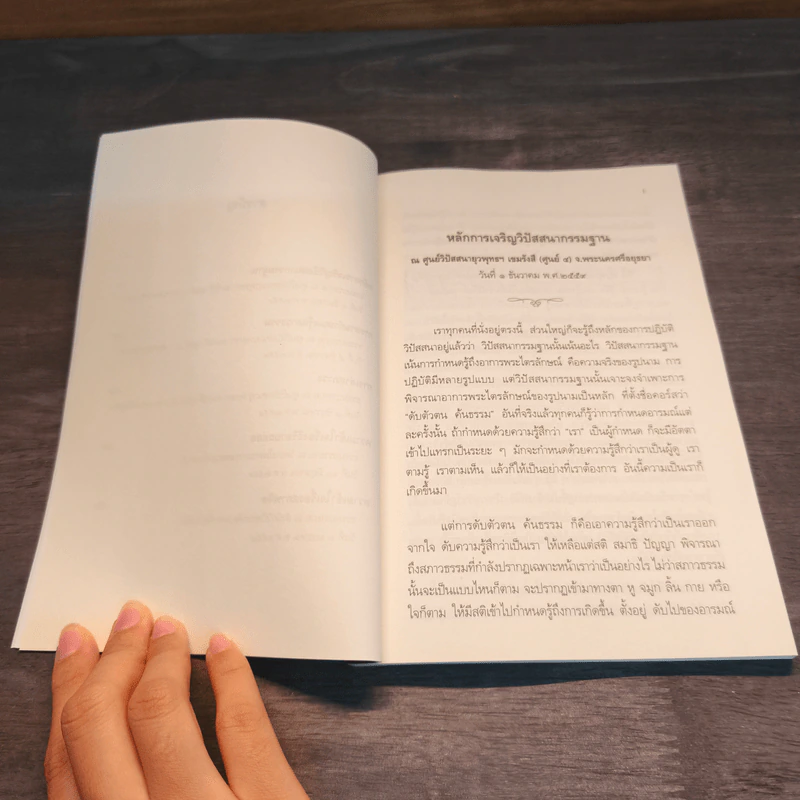 หลักการเจริญวิปัสสนากรรมฐาน
ณ ศูนย์วิปัสสนายุวพุทธฯ เขมรังสี (ศูนย์ ๔) จ.พระนครศรีอยุธยา
วันที่ ๑ ธันวาคม พ.ศ.๒๕๕๙
เราทุกคนที่นั่งอยู่ตรงนี้ ส่วนใหญ่ก็จะรู้ถึงหลักของการปฏิบัติ
วิปัสสนาอยู่แล้วว่า วิปัสสนากรรมฐานนั้นเน้นอะไร วิปัสสนากรรมฐาน
เน้นการกำหนดรู้ถึงอาการพระไตรลักษณ์ คือความจริงของรูปนาม การ
ปฏิบัติมีหลายรูปแบบ แต่วิปัสสนากรรมฐานนั้นเจาะจงจำเพาะการ
พิจารณาอาการพระไตรลักษณ์ของรูปนามเป็นหลัก ที่ตั้งชื่อคอร์สว่า
“ดับตัวตน ค้นธรรม” อันที่จริงแล้วทุกคนก็รู้ว่าการกำหนดอารมณ์แต่
ละครั้งนั้น ถ้ากำหนดด้วยความรู้สึกว่า “เรา” เป็นผู้กำหนด ก็จะมีอัตตา
เข้าไปแทรกเป็นระยะ ๆ มักจะกำหนดด้วยความรู้สึกว่าเราเป็นผู้ดู เรา
ตามรู้ เราตามเห็น แล้วก็ให้เป็นอย่างที่เราต้องการ อันนี้ความเป็นเราก็
เกิดขึ้นมา
แต่การดับตัวตน ค้นธรรม ก็คือเอาความรู้สึกว่าเป็นเราออก
จากใจ ดับความรู้สึกว่าเป็นเรา ให้เหลือแต่สติ สมาธิ ปัญญา พิจารณา
ถึงสภาวธรรมที่กำลังปรากฏเฉพาะหน้าเราว่าเป็นอย่างไร ไม่ว่าสภาวธรรม
นั้นจะเป็นแบบไหนก็ตาม จะปรากฏเข้ามาทางตา หู จมูก ลิ้น กาย หรือ
ใจก็ตาม ให้มีสติเข้าไปกำหนดรู้ถึงการเกิดขึ้น ตั้งอยู่ ดับไปของอารมณ์